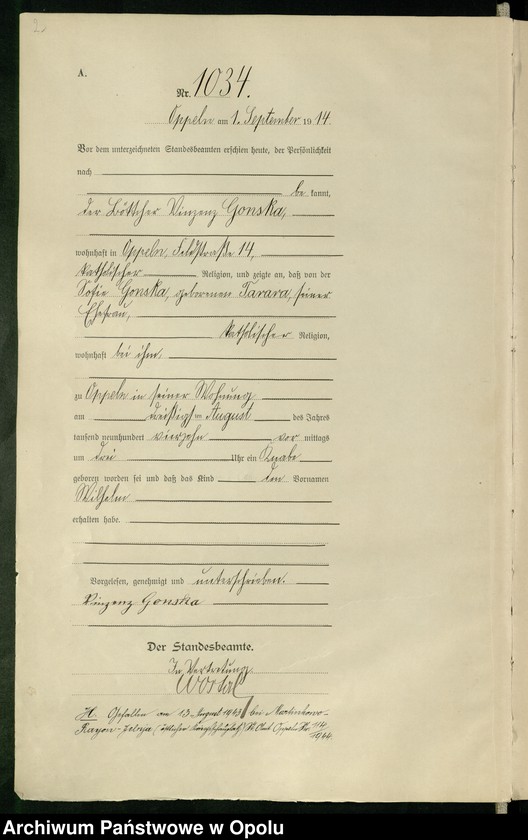 2
A.
Nr. 1034.
Oppeln am 1. September 1914
Vor dem unterzeichneten Standesbeamten erschien heute, der Persönlichkeit
nach
be kannt,
der Böttcher Vinzenz Gonska,
wohnhaft in Oppeln, Feldstraße 14,
katholischer Religion, und zeigte an, daß von der
Sofie Gonska, geborenen Tarara, seiner
Ehefrau,
katholischer Religion,
wohnhaft bei ihm,
zu Oppeln in seiner Wohnung
am dreißigsten August des Jahres
tausend neunhundert vierzehn vor mittags
um drei Uhr ein Knabe
geboren worden sei und daß das Kind den Vornamen
Wilhelm
erhalten habe.
Vorgelesen, genehmigt und unterschrieben.
Vinzenz Gonska
Der Standesbeamte.
In Vertretung
H. Gefallen am 13. August 1943 bei
Rayon - (östlicher Kriegsschauplatz) St. Amt Oppeln Nr. 114
1944.
Archiwum Państwowe w Opolu